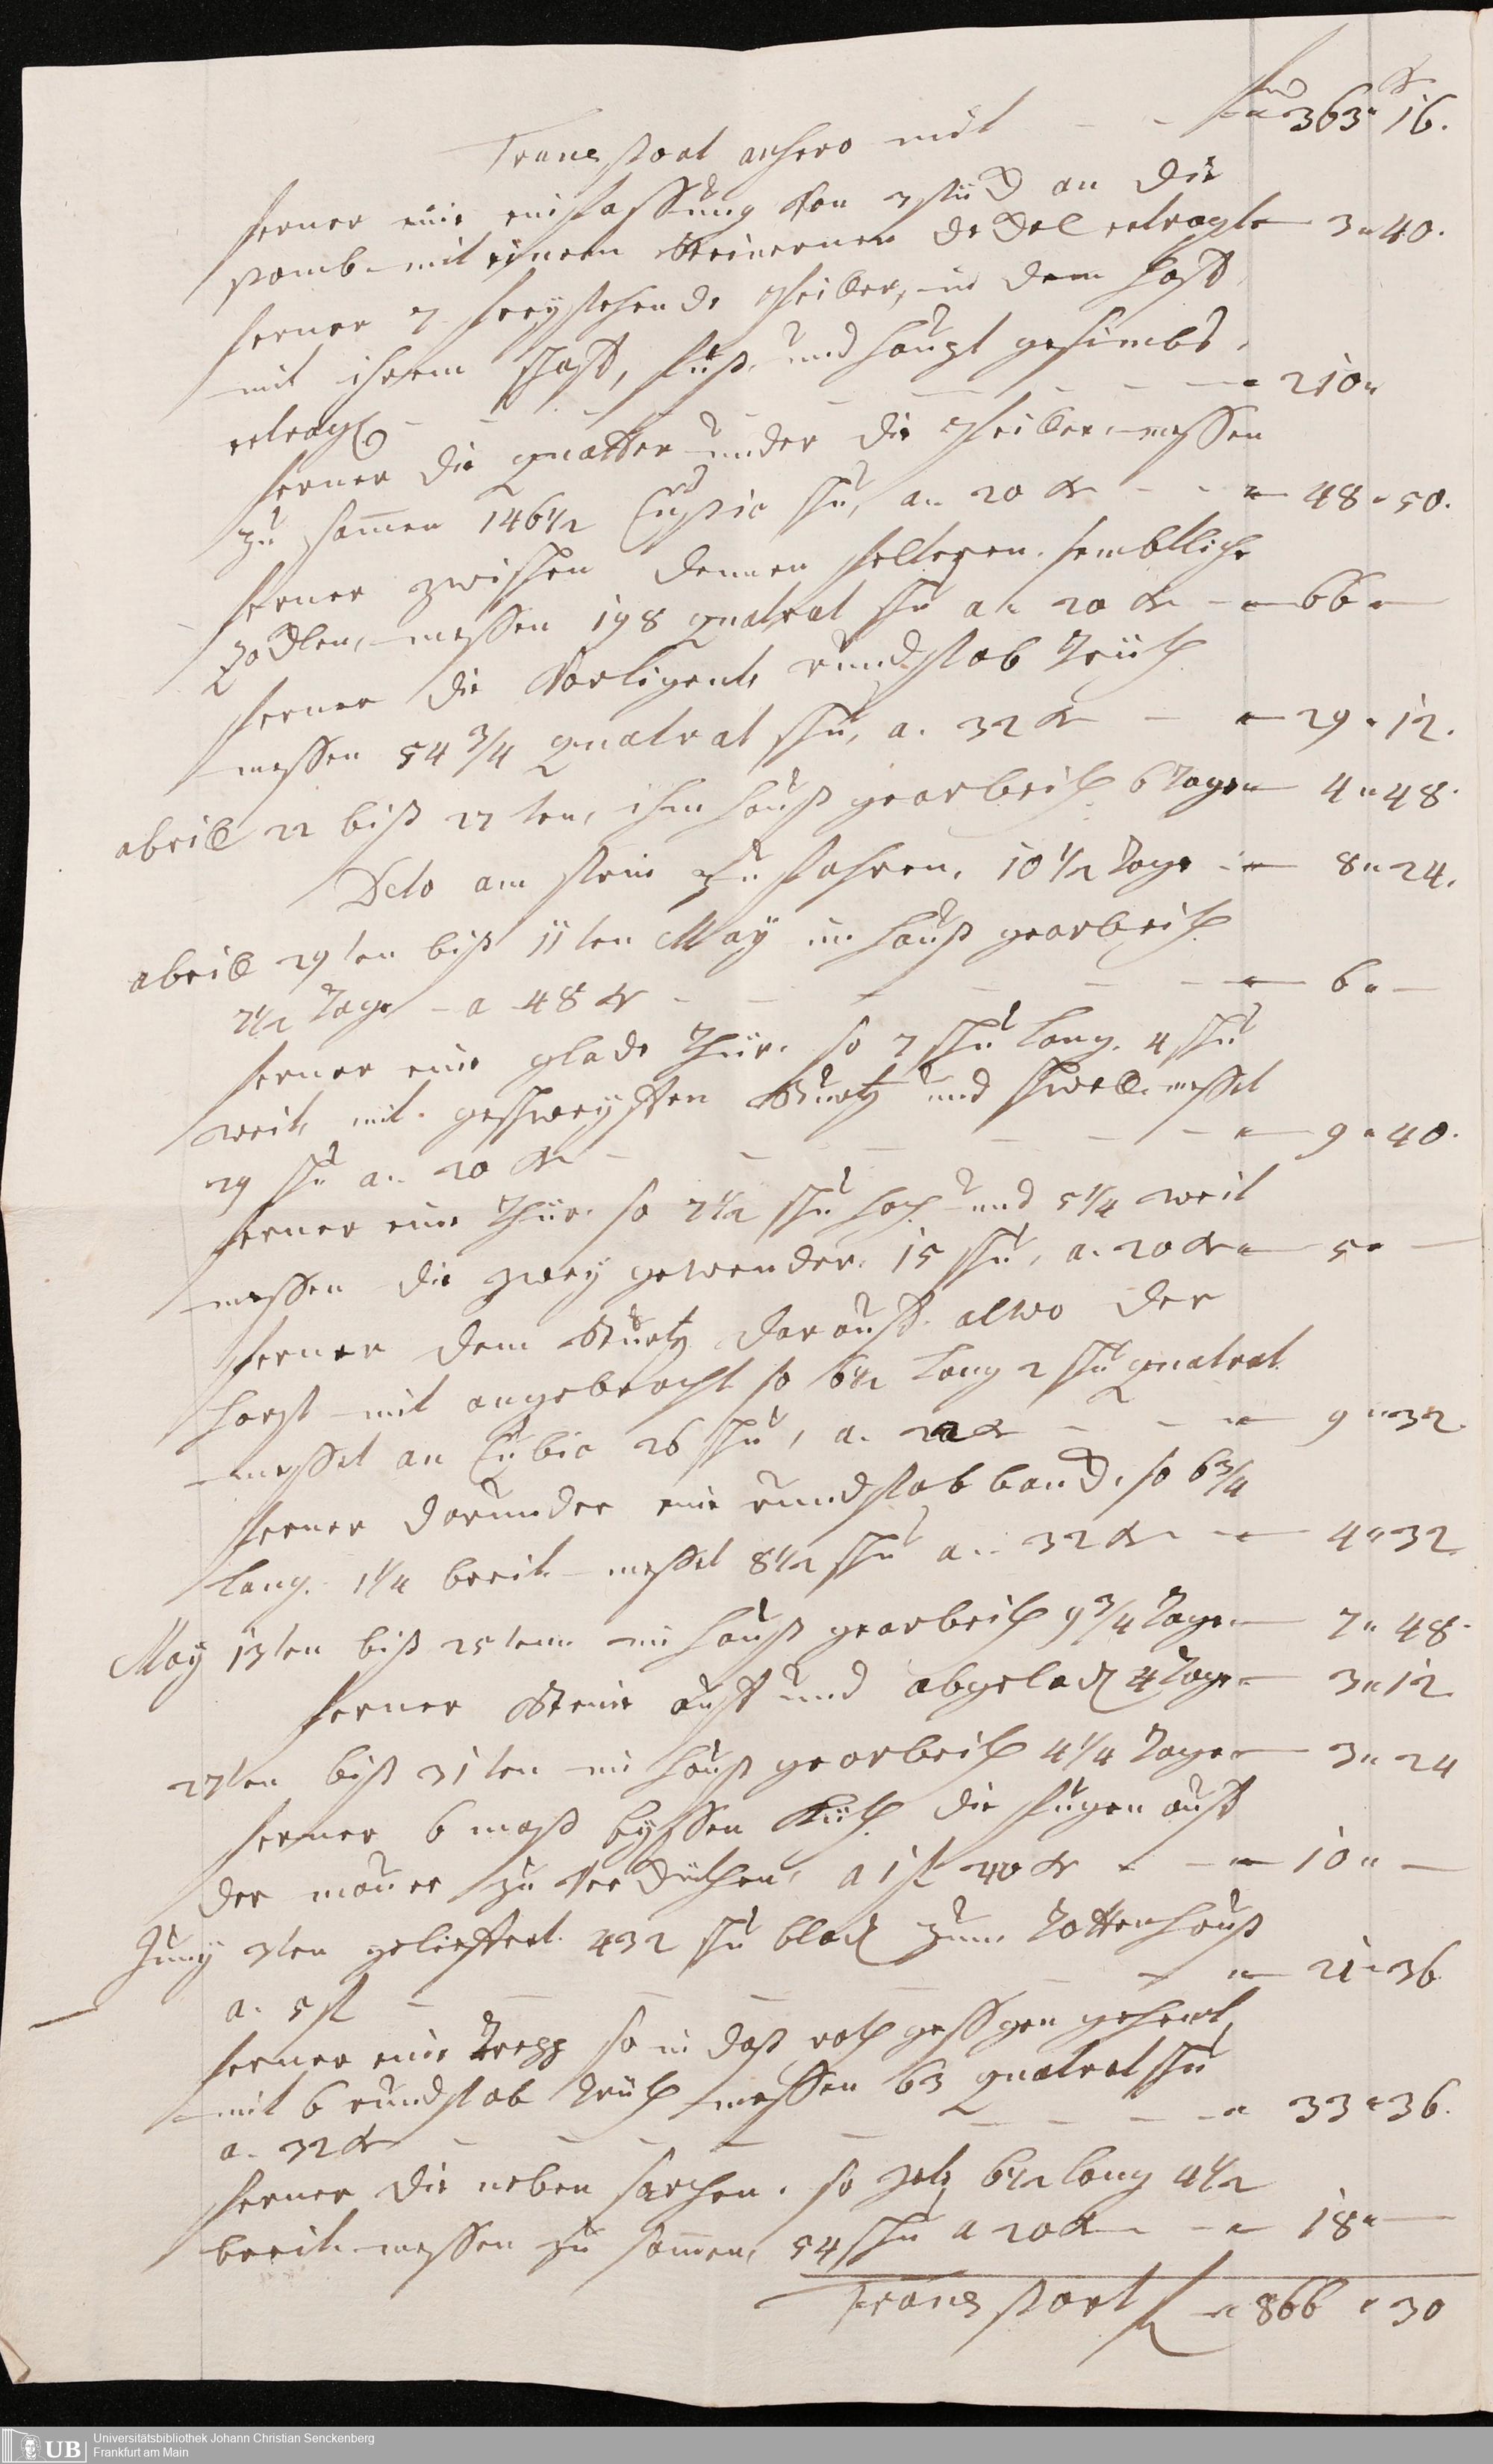 fl xr
Transport anhero mit - - " 363 " 16.
ferner eine einfassung von 3 stück an die
pomb mit einem steinernen deckel etragt " 3 " 40.
ferner 7 freystehende Pfeiller, in dem hoff
mit ihrem schafft, fuß und haupt gesimbs,
etragt - - - - - " 210 "
ferner die quatter under die Pfeiller messen
zu samen 146 1/2 Cupic schu, a 20 xr - - " 48 " 50.
ferner zwischen dennen selbigen sembtliche
Zocklen, messen 198 quatrat schu a 20 xr - " 66 " —
ferner die Vorligente rundstab Stück
messen 54 3/4 quatrat schu, a. 32 xr - " 29 " 12.
abrill 22 biß 27ten, ihm hauß gearbeith 6 tage " 4 " 48.
Deto am stein zu fahren, 10 1/2 tage - " 8 " 24.
abrill 29ten biß 11ten May im hauß gearbeith
7 1/2 tage - a 48 xr - - - - " 6 " —
ferner eine glade thür. so 7 schu lang. 4 schu
weit, mit geschweyfften Sturtz und schwell messet
29 schu a. 20 xr - - - - - " 9 " 40.
ferner eine thür. so 7 1/2 schu hoch und 5 1/4 weit
messen die zwey gewender. 15 schu, a. 20 xr " 5 " —
ferner dem Sturtz darauff alwo der
mit angebracht so 6 1/2 lang 2 schu quatrat
messet an Cubic 26 schu, a. 22 xr - - " 9 " 32.
ferner darunder eine rundstab band, so 6 3/4
lang. 1 1/4 breit messet 8 1/2 schu a. 32 xr - " 4 " 32
May 13ten biß 25tenn im hauß gearbeith 9 3/4 tage " 7 " 48.
ferner Steine auff und abgelad 4 tage " 3 " 12
27ten biß 31ten im hauß gearbeith 4 1/4 tage " 3 " 24
ferner 6 maß die fugen auff
der mauer zu a 1 fl 40 xr - - " 10 " —
Juny 3ten gelieffert. 432 schu zum
a. 3 xr - - - - - - " 21 " 36
ferner eine trepp so in daß gehent,
mit 6 rundstab Stück messen 63 quatrat schu
a. 32 xr - - - - - - " 33 " 36.
ferner die neben so 6 1/2 lang 4 1/2
breit messen zu samen, 54 schu a 20 xr - " 18 " —
Transport fl " 866 " 30
UB
Universitätsbibliothek Johann Christian Senckenberg
Frankfurt am Main